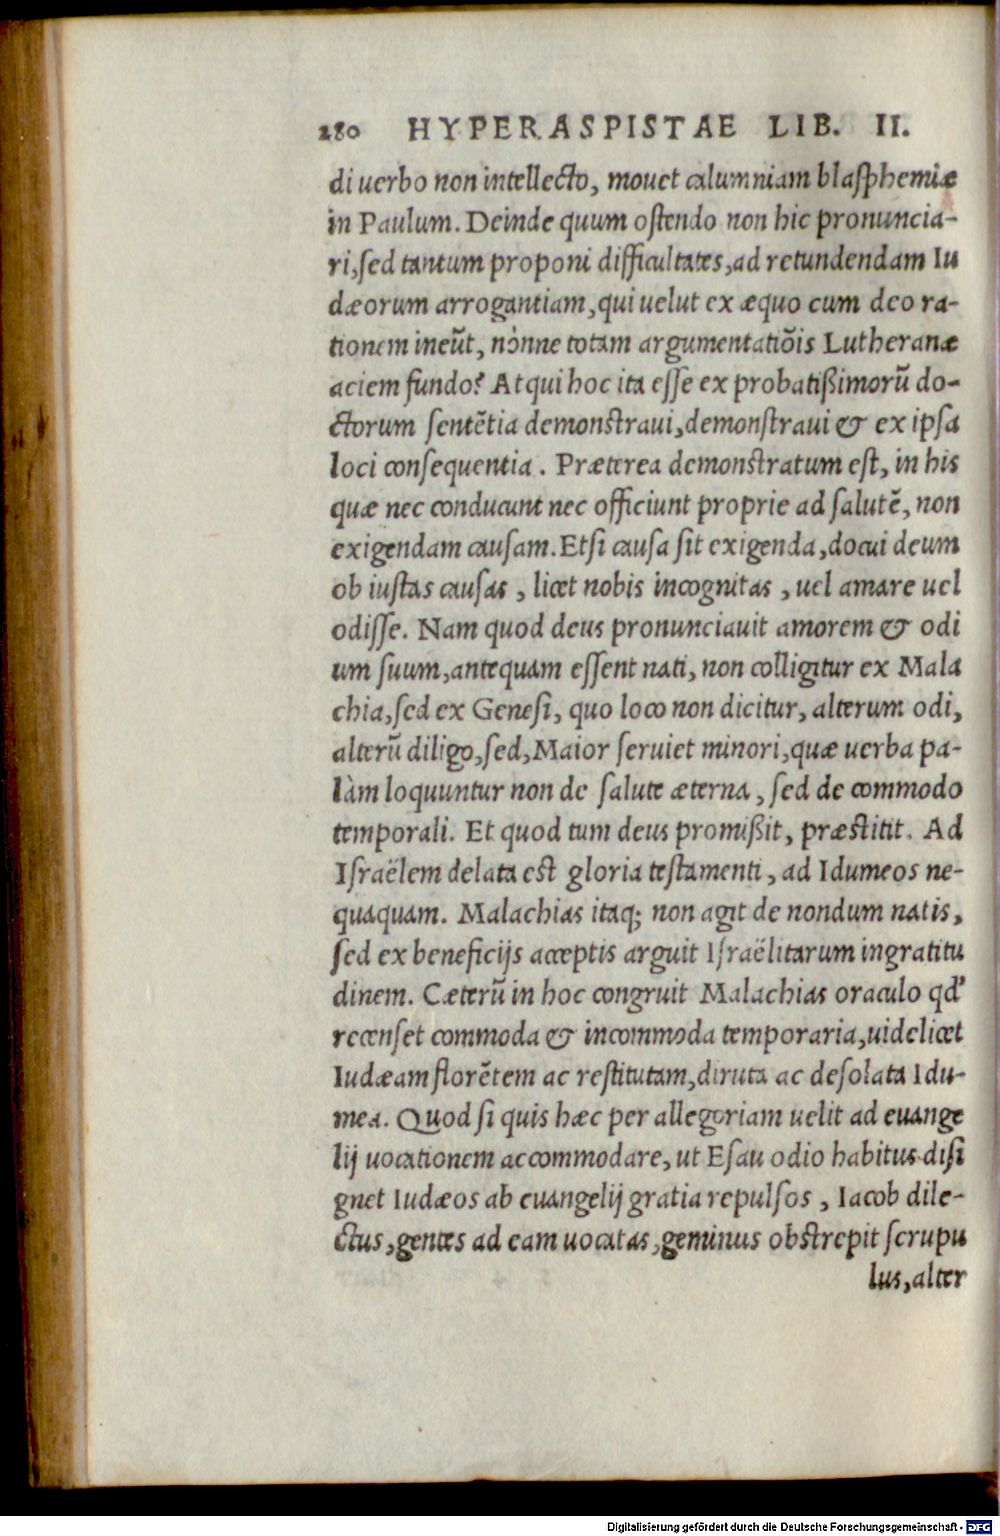 280 HYPERASPISTAE LIB. II.
di uerbo non intellecto, mouet calumniam blasphemiæ
in Paulum. Deinde quum ostendo non hic pronuncia-
ri, sed tantum proponi difficultates, ad retundendam Iu
dæorum arrogantiam, qui uelut ex æquo cum deo ra-
tionem ineũt, nònne totam argumentatiõis Lutheranæ
aciem fundo? Atqui hoc ita esse ex probatißimorũ do-
ctorum sentẽtia demonstraui, demonstraui & ex ipsa
loci consequentia. Præterea demonstratum est, in his
quæ nec conducunt nec officiunt proprie ad salutẽ, non
exigendam causam. Etsi causa sit exigenda, docui deum
ob iustas causas, licet nobis incognitas, uel amare uel
odisse. Nam quod deus pronunciauit amorem & odi
um suum, antequam essent nati, non colligitur ex Mala
chia, sed ex Genesi, quo loco non dicitur, alterum odi,
alterũ diligo, sed, Maior seruiet minori, quæ uerba pa-
làm loquuntur non de salute æterna, sed de commodo
temporali. Et quod tum deus promißit, præstitit. Ad
Israëlem delata est gloria testamenti, ad Idumeos ne-
quaquam. Malachias itaq; non agit de nondum natis,
sed ex beneficijs acceptis arguit Israëlitarum ingratitu
dinem. Cæterũ in hoc congruit Malachias oraculo qd'
recenset commoda & incommoda temporaria, uidelicet
Iudæam florẽtem ac restitutam, diruta ac desolata Idu-
mea. Quod si quis hæc per allegoriam uelit ad euange
lij uocationem accommodare, ut Esau odio habitus disi
gnet Iudæos ab euangelij gratia repulsos, Iacob dile-
ctus, gentes ad eam uocatas, geminus obstrepit scrupu
lus, alter
Digitalisierung gefördert durch die Deutsche Forschungsgemeinschaft - DFG